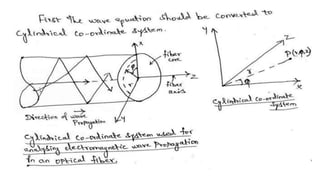 First the wave equation should be converted to
Cylindrical co-ordinate system.
x
fiber
core
r
φ
z
fiber
axis
y
Direction of wave
Propagation
Y
Z
P(r,φ,z)
r
φ
x
Cylindrical co-ordinate
System
Cylindrical co-ordinate system used for
analysing electromagnetic wave propagation
in an optical fiber.